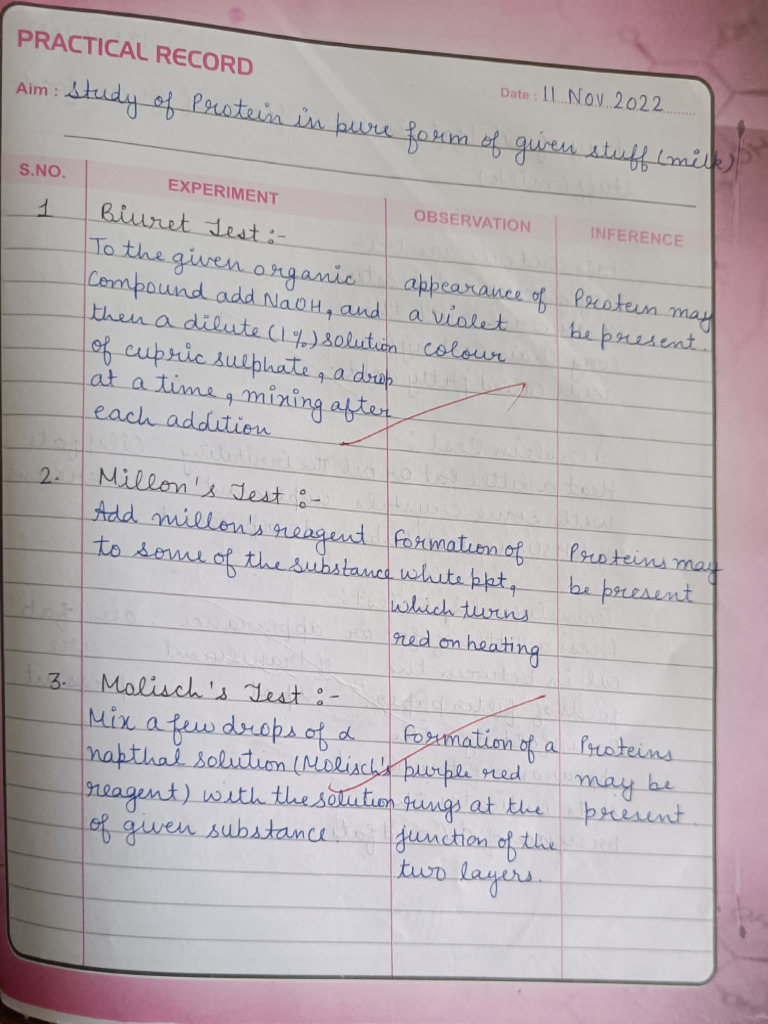 PRACTICAL RECORD
Date : 11 Nov 2022
Aim : Study of Protein in pure form of given stuff (milk)
S.NO. EXPERIMENT OBSERVATION INFERENCE
1 Biuret Test :-
To the given organic
Compound add NaOH, and
then a dilute (1%) solution
of cupric sulphate, a drop
at a time, mixing after
each addition
appearance of
a violet
colour
Protein may
be present.
2. Millon's Test :-
Add millon's reagent
to some of the substance
Formation of
white ppt,
which turns
red on heating
Proteins may
be present
3. Molisch's Test :-
Mix a few drops of α
napthal solution (Molisch's
reagent) with the solution
of given substance.
Formation of a
purple red
rings at the
junction of the
two layers.
Proteins
may be
present.